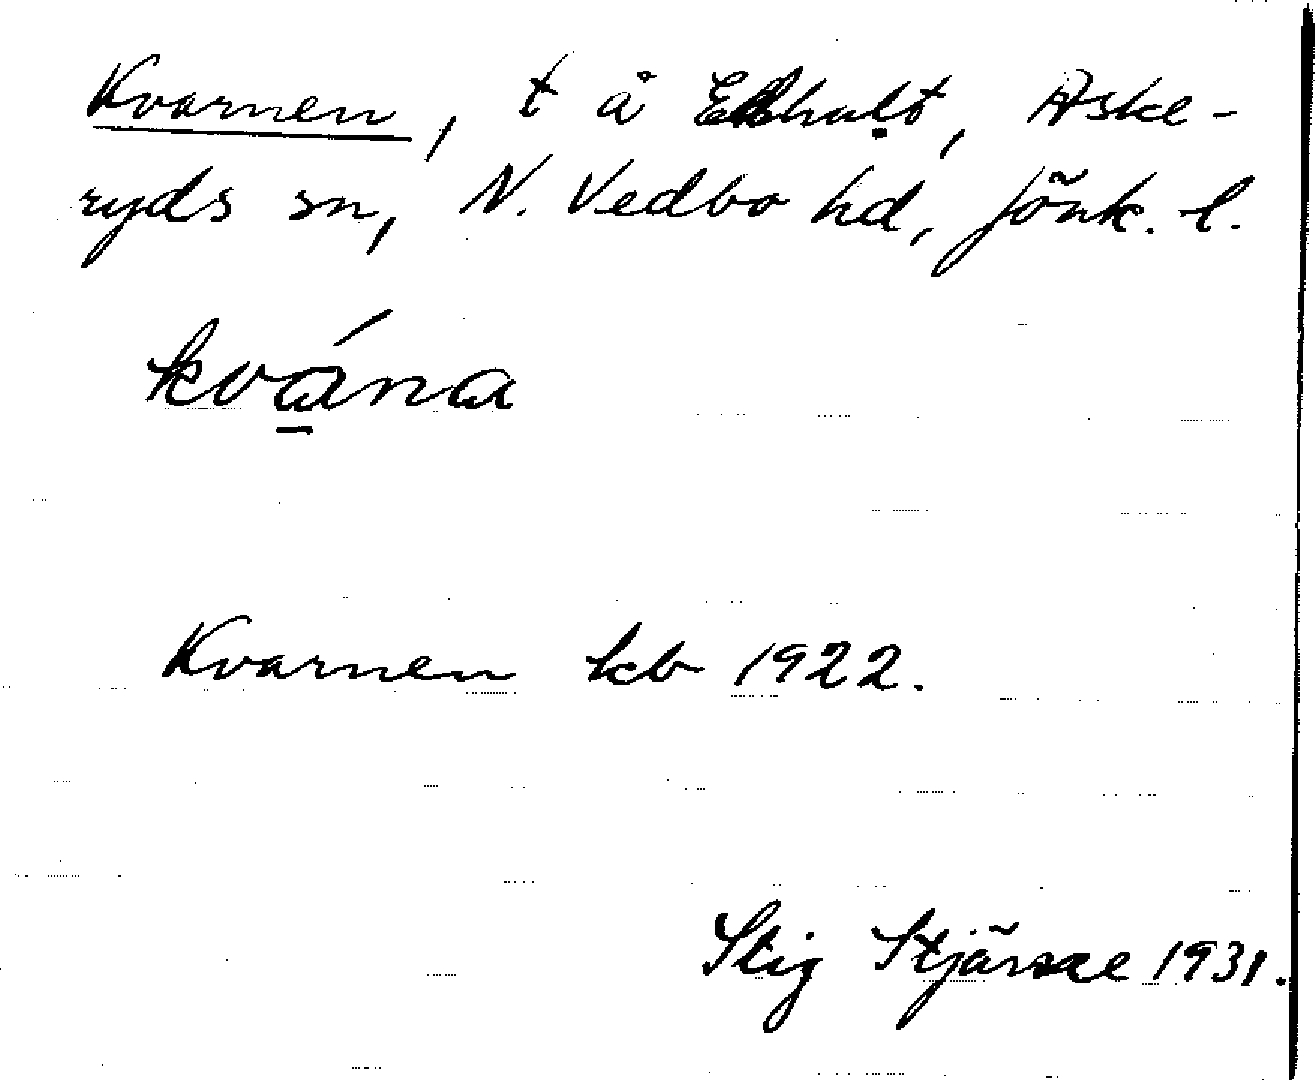 Kvarnen, t å Ekhult, Aske-
ryds sn, N. Vedbo hd, Jönk. l.
kvána
Kvarnen kb 1922.
Stig 1931.